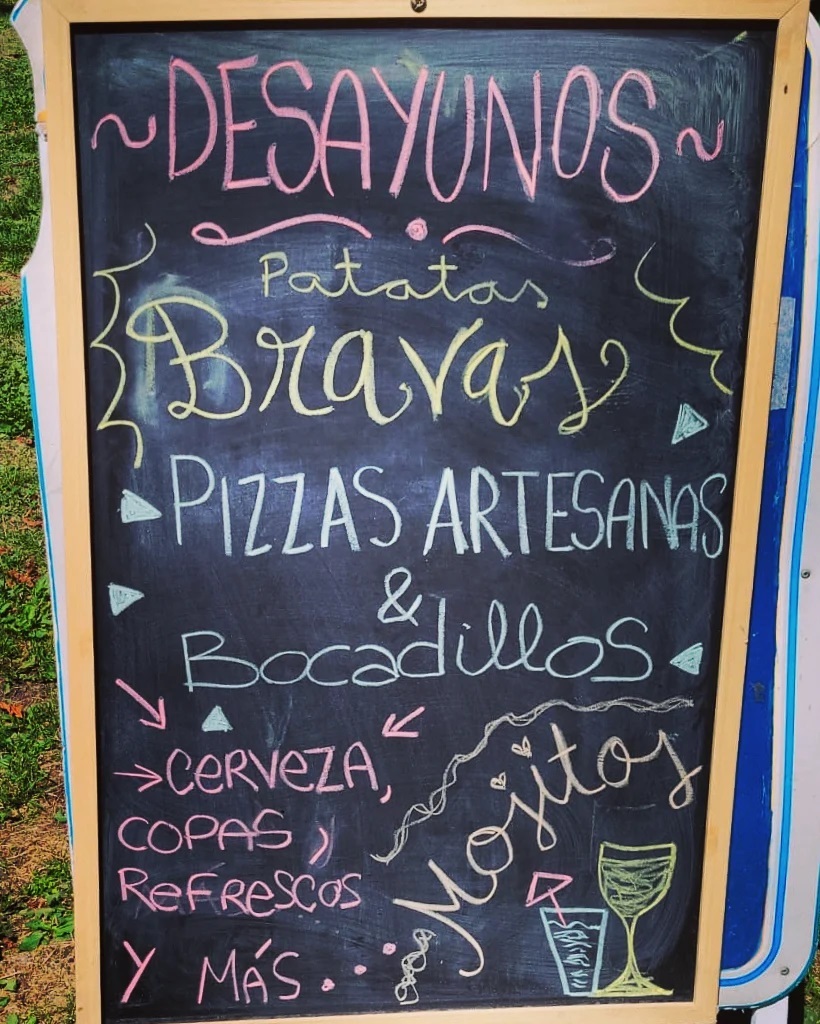 ~ DESAYUNOS ~
Patatas
Bravas
PIZZAS ARTESANAS
&
Bocadillos
CERVEZA,
COPAS,
REFRESCOS
Y MÁS...
Mojitos